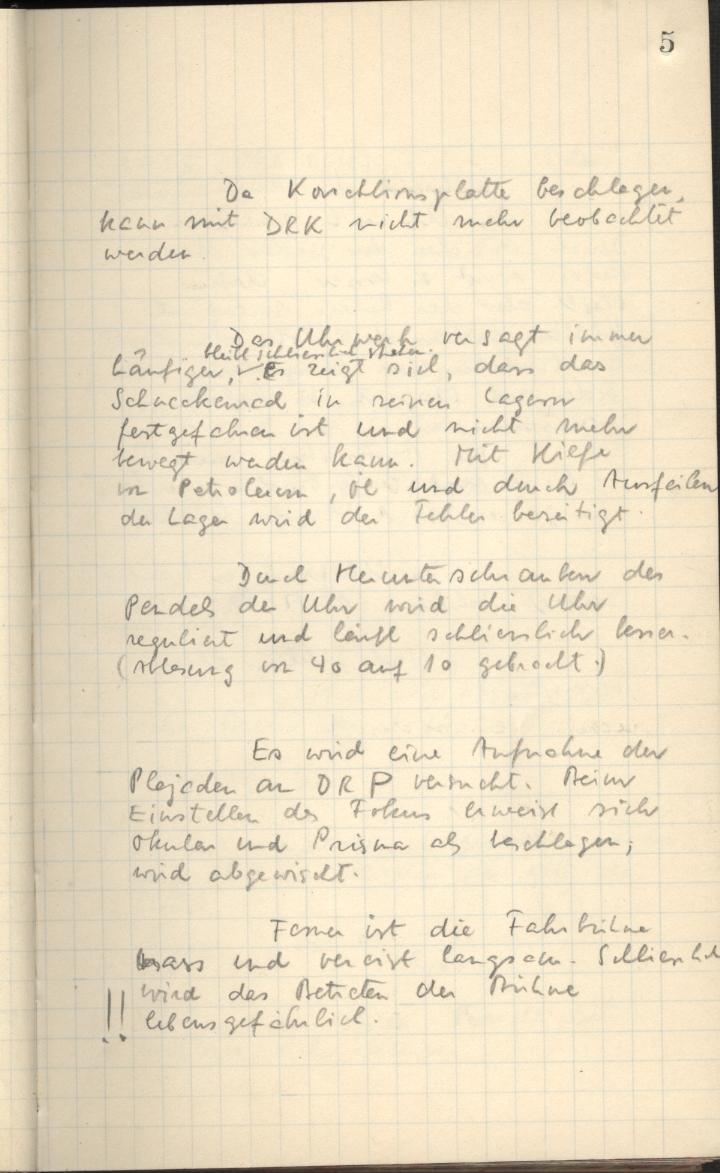 5
Da Korrektionsplatte beschlagen,
kann mit DRK nicht mehr beobachtet
werden.
Das Uhrwerk versagt immer
bleibt schliesslich stehen.
häufiger, Es zeigt sich, dass das
Schneckenrad in seinen Lagern
festgefahren ist und nicht mehr
bewegt werden kann. Mit Hilfe
von Petroleum, Öl und durch Ausfeilen
der Lager wird der Fehler beseitigt.
Durch Herunterschrauben des
Pendels der Uhr wird die Uhr
reguliert und läuft schliesslich besser.
(Ablesung von 40 auf 10 gebracht.)
Es wird eine Aufnahme der
Plejaden an DRP versucht. Beim
Einstellen des Fokus erweist sich
Okular und Prisma als beschlagen;
wird abgewischt.
Ferner ist die Fahrbühne
nass und vereist langsam. Schliesslich
!! wird das Betreten der Bühne
lebensgefährlich.